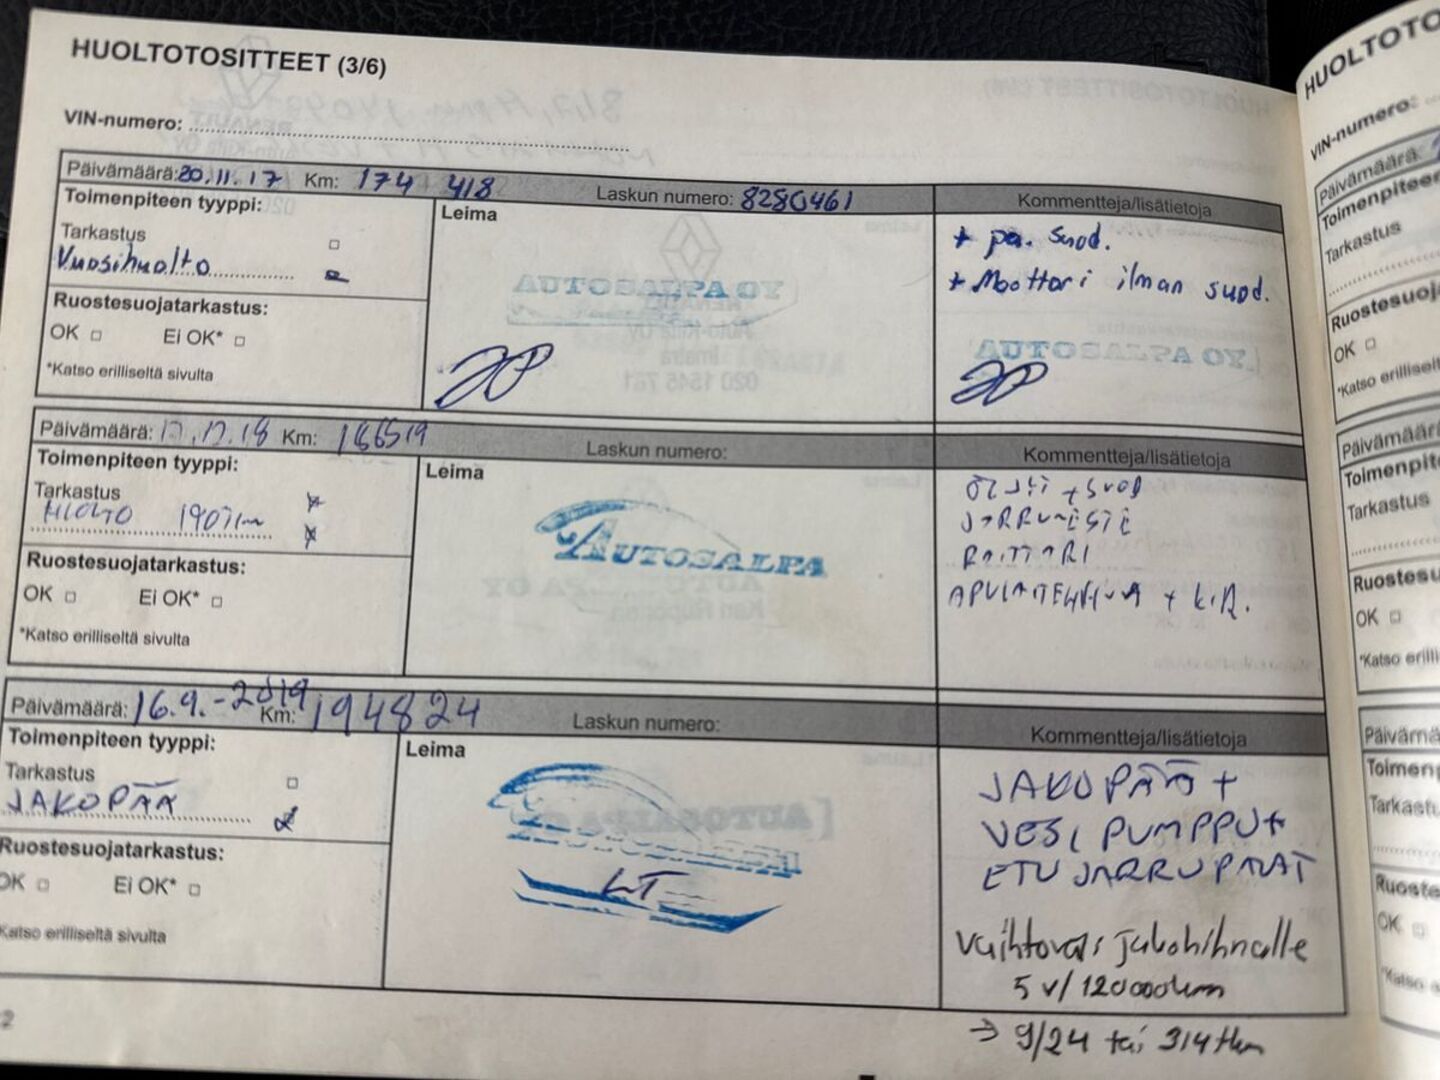 HUOLTOTOSITTEET (3/6)
VIN-numero:
Päivämäärä: 20.11.17 Km: 174 418 Laskun numero: 8280461
Kommentteja/lisätietoja
Toimenpiteen tyyppi:
Tarkastus
Vuosihuolto
Ruostesuojatarkastus:
OK Ei OK*
*Katso erilliseltä sivulta
Leima
AUTOSALPA OY
+ pa. suod.
+ Moottori ilman suod.
AUTOSALPA OY
Päivämäärä: Km: 186519 Laskun numero:
Kommentteja/lisätietoja
Toimenpiteen tyyppi:
Tarkastus
HUOLTO 190Tkm
Ruostesuojatarkastus:
OK Ei OK*
*Katso erilliseltä sivulta
Leima
AUTOSALPA
ÖLJYT + SUOD
JARRUNESTE
RAITTARI
+ KIR.
Päivämäärä: 16.9.-2019 Km: 194824 Laskun numero:
Kommentteja/lisätietoja
Toimenpiteen tyyppi:
Tarkastus
JAKOPÄÄ
Ruostesuojatarkastus:
OK Ei OK*
Katso erilliseltä sivulta
Leima
AUTOSALPA
JAKOPÄÄ +
VESI PUMPPU +
ETU JARRUPALAT
Vaihtoväli jakohihnalle
5 v/120000km
→ 9/24 tai 314tkm
2
HUOLTOTO
VIN-numero:
Päivämäärä:
Toimenpiteen
Tarkastus
Ruostesuoj
OK
*Katso erilliselt
Päivämäärä
Toimenpit
Tarkastus
Ruostesu
OK
*Katso erilli
Päivämä
Toimen
Tarkast
Ruoste
OK
*Katso e